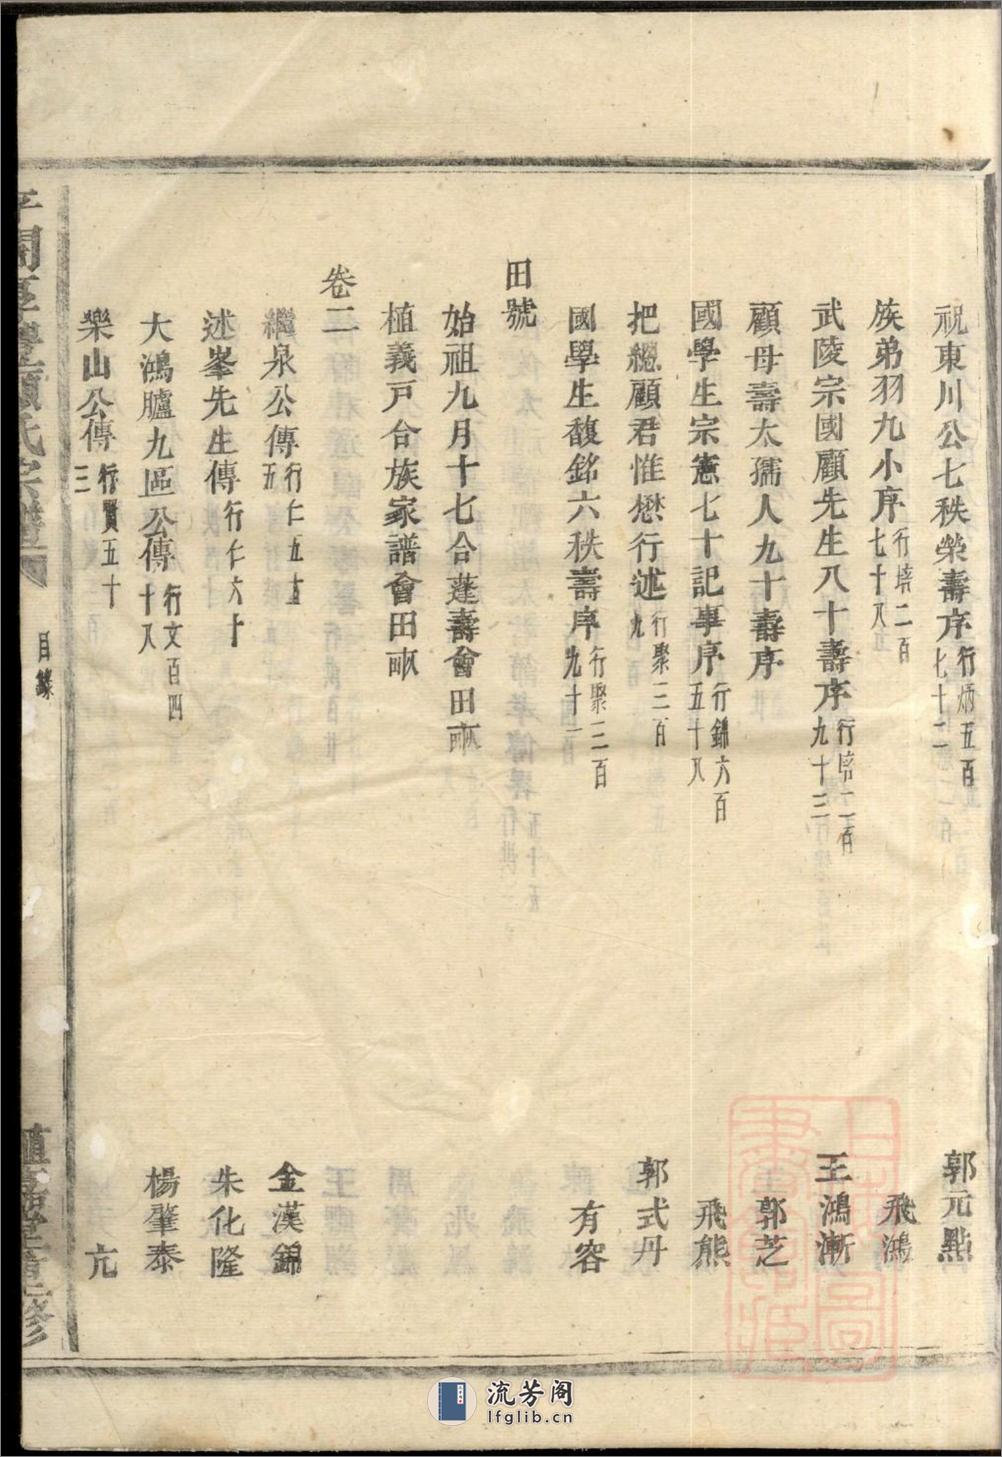 祝東川公七秩榮壽序 行炳五百七十二 郭元點
族弟羽九小序 行培二百七十八 飛鴻
武陵宗國顧先生八十壽序 行培二百九十三 王鴻漸
顧母壽太孺人九十壽序 郭芝
國學生宗憲七十記事序 行錦六百五十八 飛熊
把總顧君惟懋行述 行聚三百九 郭式丹
國學生馥銘六秩壽序 行聚二百九十一 有容
田號
始祖九月十七合蓬壽會田畝
植義戸合族家譜會田畝
卷二
繼泉公傳 行仁五十五 金漢錦
述峯先生傳 行仁六十 朱化隆
大鴻臚九區公傳 行文百四十八 楊肇泰
樂山公傳 行賢五十三 亢
顧氏宗譜
目錄
流芳阁
lfglib.cn